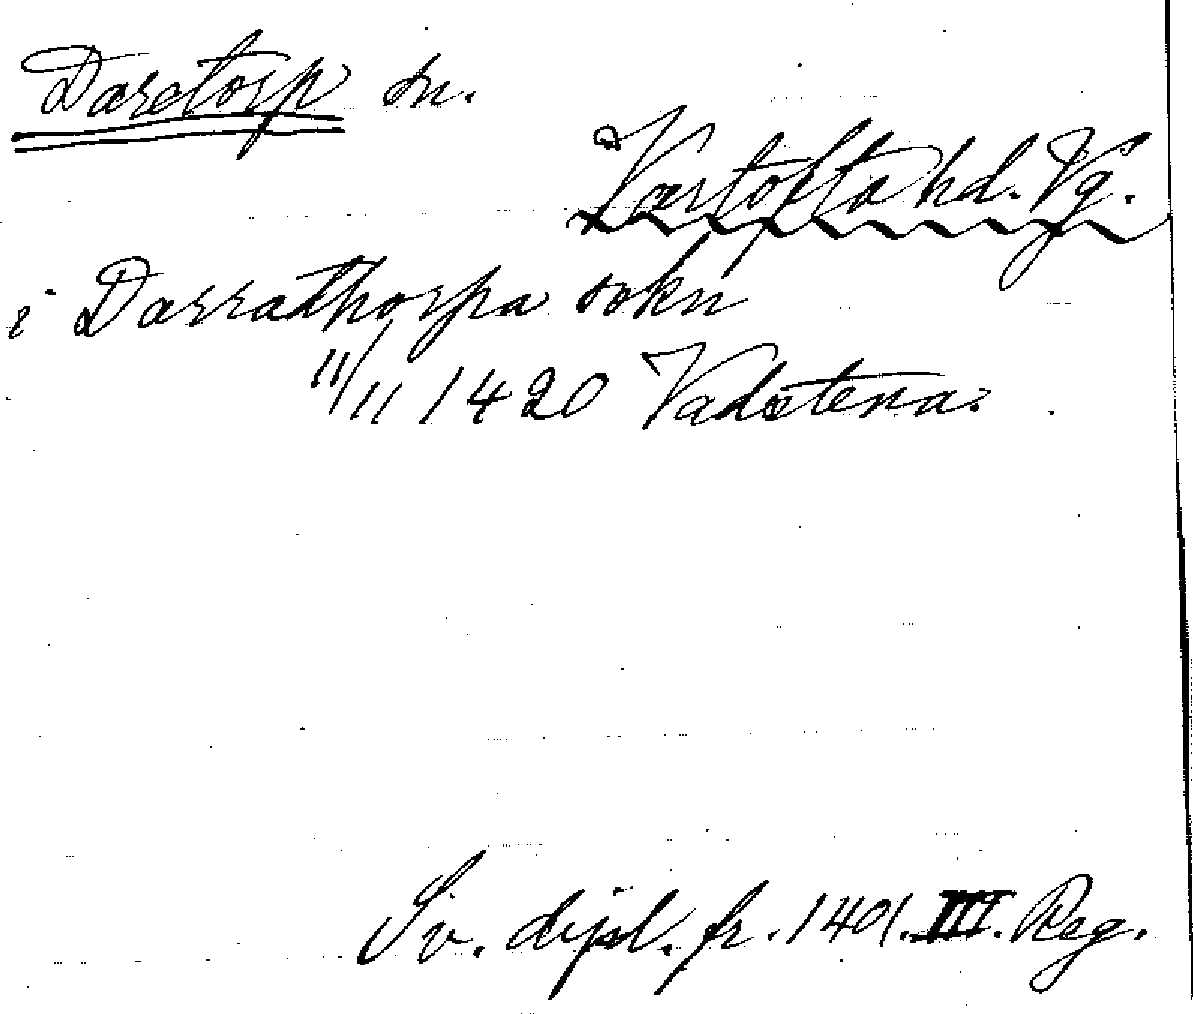 Daretorp sn.
Vartofta hd. Vg.
i Darrathorpa sokn
11/11 1420 Vadstena.
Sv. dipl. fr. 1401. III. Reg.